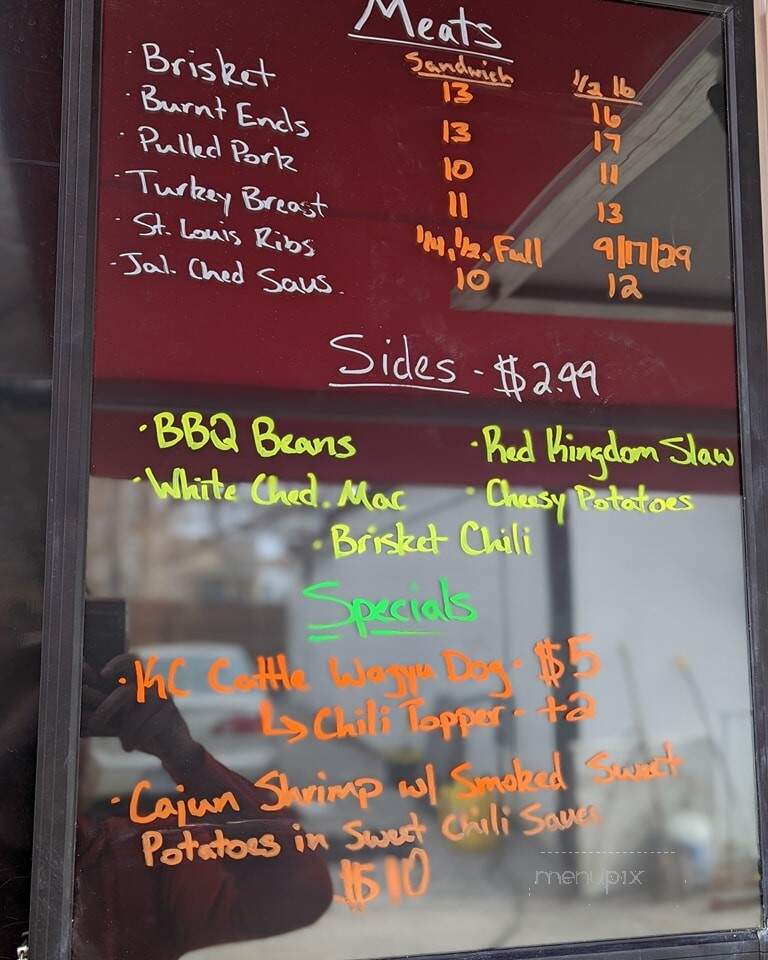 Meats
Sandwich 1/2 lb
· Brisket 13 16
· Burnt Ends 13 17
· Pulled Pork 10 11
· Turkey Breast 11 13
· St. Louis Ribs 1/4, 1/2, Full 9/17/29
· Jal. Ched Saus. 10 12
Sides - $2.99
· BBQ Beans · Red Kingdom Slaw
· White Ched. Mac · Cheesy Potatoes
· Brisket Chili
Specials
· KC Cattle Wagyu Dog - $5
↳ Chili Topper - +2
· Cajun Shrimp w/ Smoked Sweet
Potatoes in Sweet Chili Sauce
$10
menupix